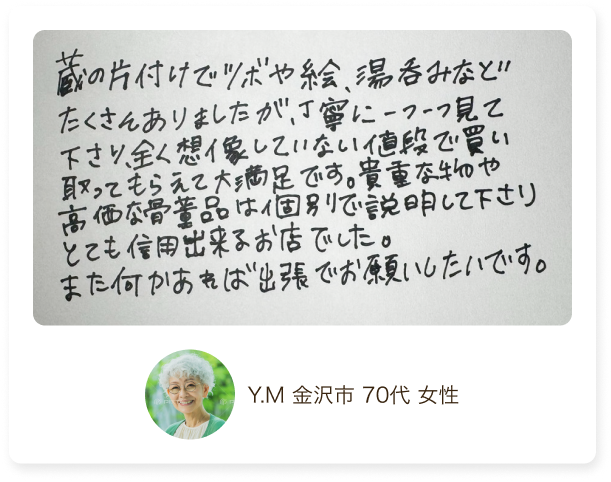 蔵の片付けでツボや絵、湯呑みなど
たくさんありましたが、丁寧に一つ一つ見て
下さり、全く想像していない値段で買い
取ってもらえて大満足です。貴重な物や
高価な骨董品は個別で説明して下さり
とても信用出来るお店でした。
また何かあれば出張でお願いしたいです。
Y.M 金沢市 70代 女性